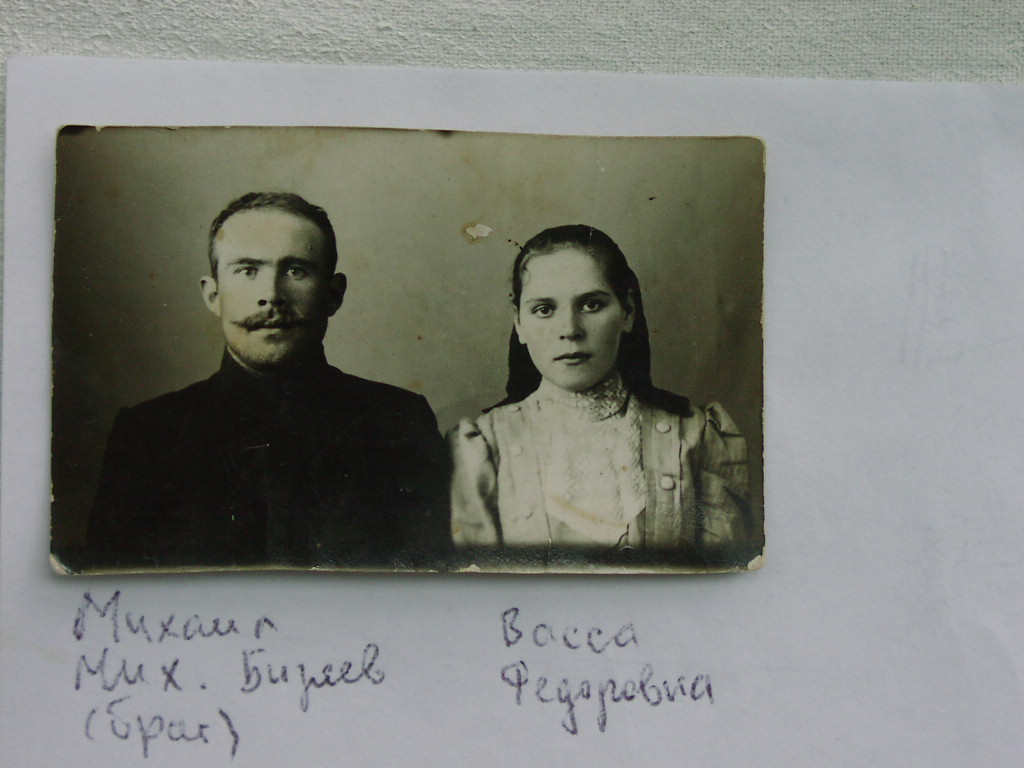 Михаил
Мих. Бизяев
(брат)
Васса
Федоровна